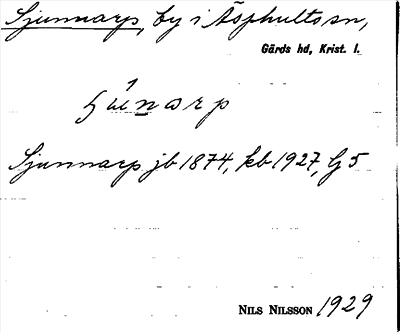 Sjunnarp, by i Äsphults sn,
Gärds hd, Krist. l.
Sjunnarp jb 1874, kb 1927, Gj 5
NILS NILSSON 1929